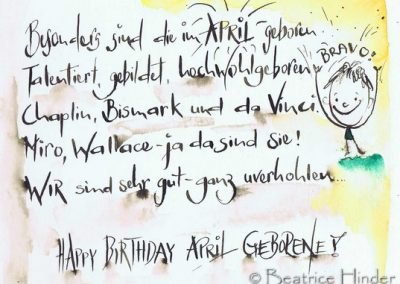 Besonders sind die im APRIL geboren
Talentiert, gebildet, hochwohlgeboren
BRAVO!
Chaplin, Bismark und da Vinci.
Miro, Wallace - ja da sind sie!
WIR sind sehr gut - ganz uverhohlen...
HAPPY BIRTHDAY APRIL GEBORENE!
© Beatrice Hinder